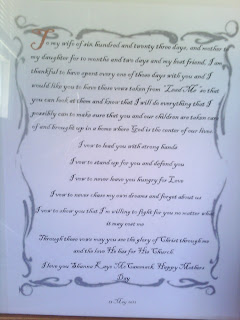 To my wife of six hundred and twenty three days, and mother of
my daughter for 10 months and ten days and my best friend. I am
thankful to have spent every one of those days with you and I
would like you to have these vows taken from "Lead Me" so that
you can look at them and know that I will do everything that I
possibly can to make sure that you and our children are taken care
of and brought up in a home where God is the center of our lives.
I vow to lead you with strong hands
I vow to stand up for you and defend you
I vow to never leave you hungry for Love
I vow to never chase my own dreams and forget about us
I vow to show you that I'm willing to fight for you no matter what
it may cost me
Through these vows may you see the glory of Christ through me
and the love He has for His Church.
I love you Shianne Kaye McCammack Happy Mothers
Day
May